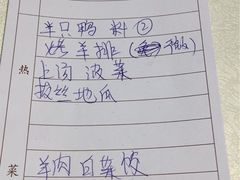 半只鸭 料②
烤羊排(微)
上汤 波菜
拔丝地瓜
热
羊肉白菜饺
菜